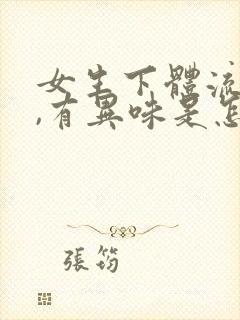 女生下體流
,有異味是怎
張筠